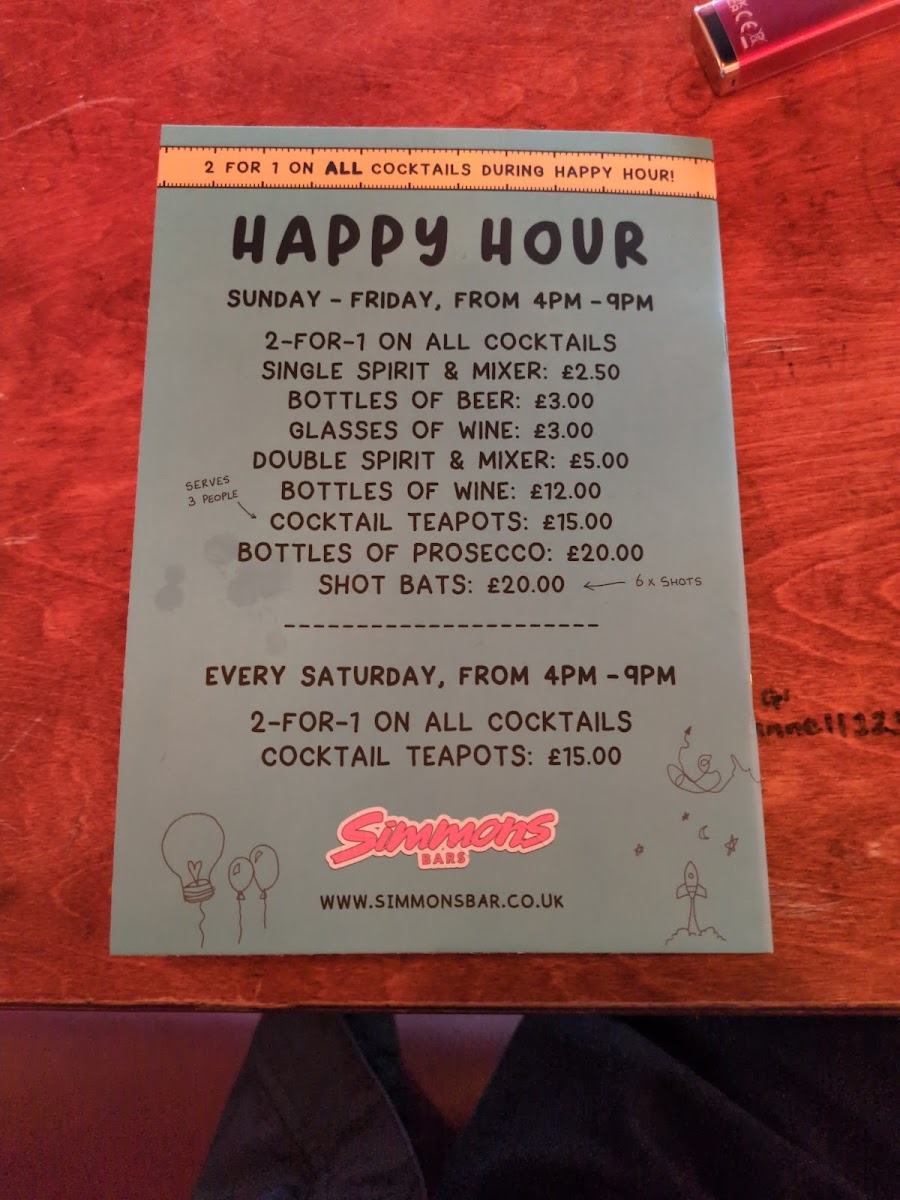 2 FOR 1 ON ALL COCKTAILS DURING HAPPY HOUR!
HAPPY HOUR
SUNDAY - FRIDAY, FROM 4PM - 9PM
2-FOR-1 ON ALL COCKTAILS
SINGLE SPIRIT & MIXER: £2.50
BOTTLES OF BEER: £3.00
GLASSES OF WINE: £3.00
DOUBLE SPIRIT & MIXER: £5.00
BOTTLES OF WINE: £12.00
SERVES
3 PEOPLE
COCKTAIL TEAPOTS: £15.00
BOTTLES OF PROSECCO: £20.00
SHOT BATS: £20.00
6 x SHOTS
EVERY SATURDAY, FROM 4PM - 9PM
2-FOR-1 ON ALL COCKTAILS
COCKTAIL TEAPOTS: £15.00
Simmons
BARS
WWW.SIMMONSBAR.CO.UK